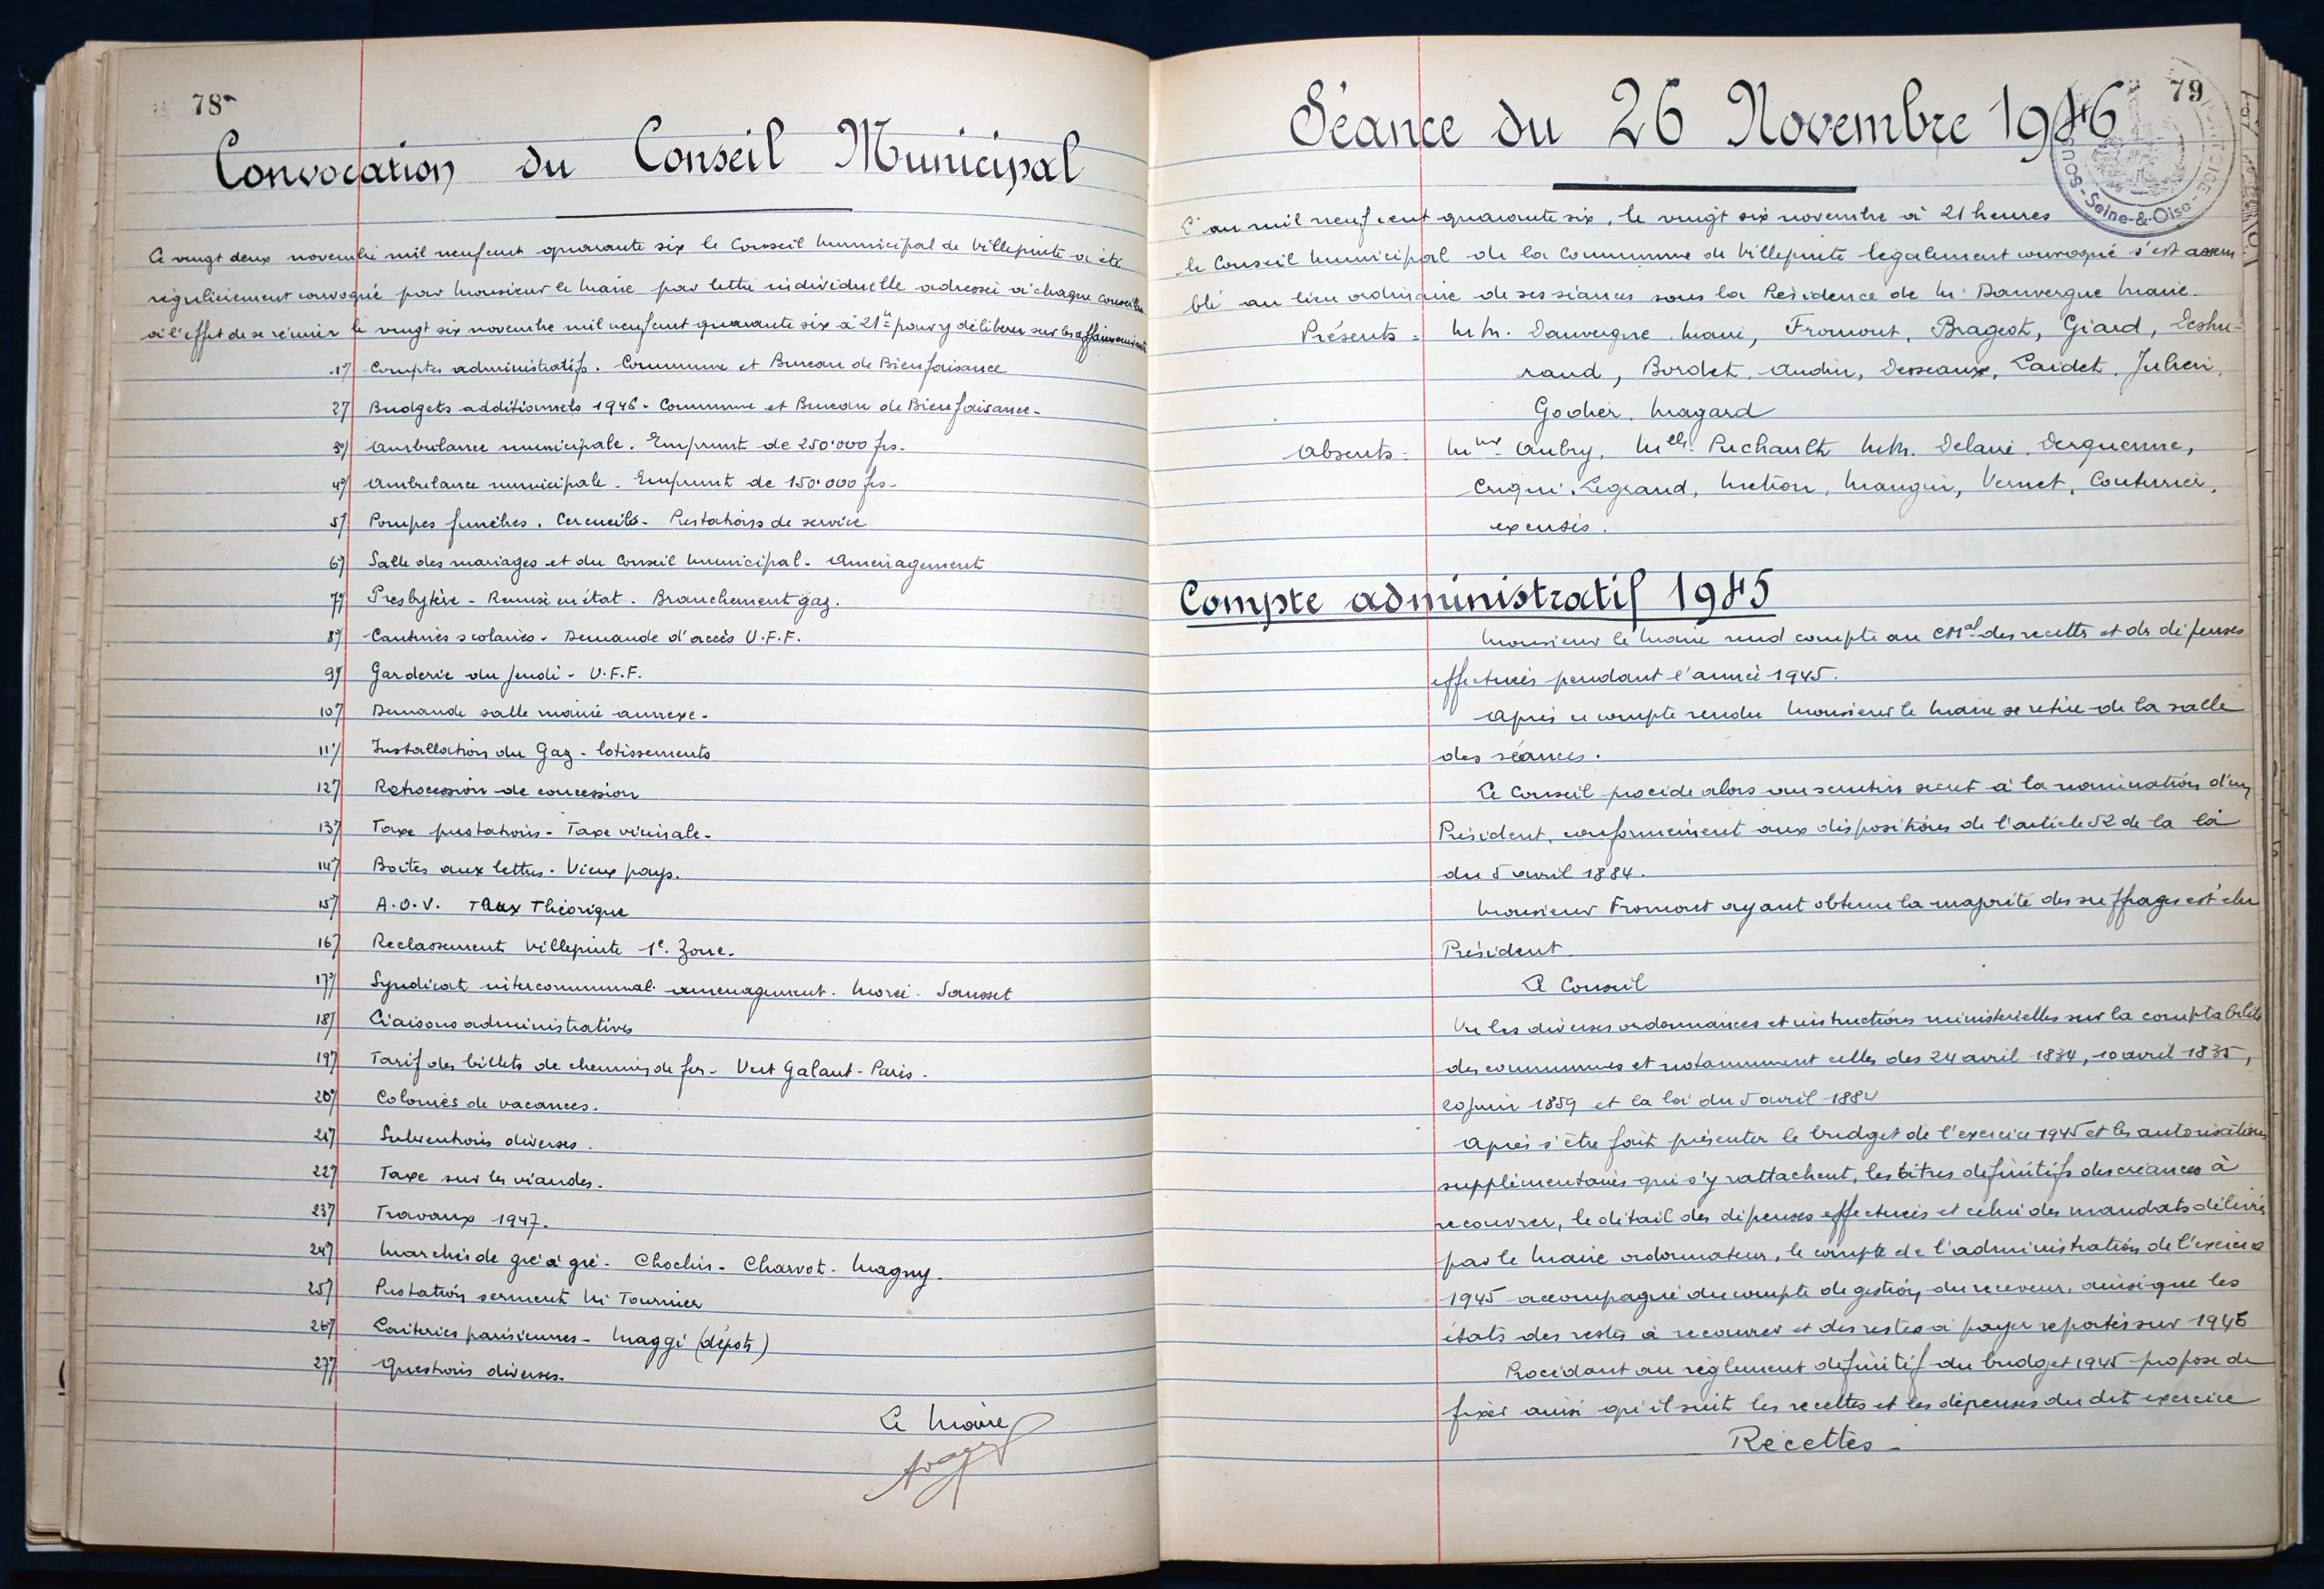 78
Convocation du Conseil Municipal
Ce vingt deux novembre mil neuf cent quarante six le Conseil Municipal de Villepinte a été
régulièrement convoqué par Monsieur le Maire par lettre individuelle adressée à chaque conseiller
à l'effet de se réunir le vingt six novembre mil neuf cent quarante six à 21h pour y délibérer sur les affaires
1°/ Comptes administratifs. Commune et Bureau de Bienfaisance
2°/ Budgets additionnels 1946 - Commune et Bureau de Bienfaisance -
3°/ Ambulance municipale. Emprunt de 250.000 frs.
4°/ Ambulance municipale - Emprunt de 150.000 frs -
5°/ Pompes funèbres. Cercueils - Prestations de service
6°/ Salle des mariages et du Conseil Municipal - Aménagement
7°/ Presbytère - Remise en état. Branchement gaz.
8°/ Cantines scolaires - Demande d'accès U.F.F.
9°/ Garderie du Jeudi - U.F.F.
10°/ Demande salle mairie annexe -
11°/ Installation du Gaz - lotissements
12°/ Rétrocession de concession
13°/ Taxe prestations - Taxe vicinale -
14°/ Boîtes aux lettres. Vieux pays.
15°/ A.O.V. Taux Théorique
16°/ Reclassement Villepinte 1e. Zone.
17°/ Syndicat intercommunal aménagement. Morée. Sausset
18°/ Liaisons administratives
19°/ Tarif des billets de chemins de fer - Vert Galant - Paris.
20°/ Colonies de vacances.
21°/ Subventions diverses.
22°/ Taxe sur les viandes.
23°/ Travaux 1947.
24°/ Marchés de gré à gré - Chochin - Charvot - Magny.
25°/ Prestation serment M. Tournier
26°/ Laiteries parisiennes - Maggi (dépôt)
27°/ Questions diverses.
Le Maire
79
Séance du 26 Novembre 1946
Seine-&-Oise
L'an mil neuf cent quarante six, le vingt six novembre à 21 heures
le Conseil Municipal de la Commune de Villepinte légalement convoqué s'est assem
blé au lieu ordinaire de ses séances sous la Présidence de M. Dauvergne Maire.
Présents = M.M. Dauvergne Maire, Fromont, Brageot, Giard, Deshu-
raud, Bordet, Audin, Desseaux, Laidet, Julien,
Godier, Magard
Absents = Mme Aubry, Melle Puchault M.M. Delarie, Derquenne,
Criqui, Legrand, Metion, Mangin, Vernet, Couturier,
excusés.
Compte administratif 1945
Monsieur le Maire rend compte au CMal des recettes et des dépenses
effectuées pendant l'année 1945.
Après ce compte rendu Monsieur le Maire se retire de la salle
des séances.
Le Conseil procède alors au scrutin secret à la nomination d'un
Président, conformément aux dispositions de l'article 52 de la loi
du 5 avril 1884.
Monsieur Fromont ayant obtenu la majorité des suffrages est élu
Président
Le Conseil
Vu les diverses ordonnances et instructions ministérielles sur la comptabilité
des communes et notamment celles des 24 avril 1834, 10 avril 1835,
20 juin 1859 et la loi du 5 avril 1884
Après s'être fait présenter le budget de l'exercice 1945 et les autorisations
supplémentaires qui s'y rattachent, les titres définitifs des créances à
recouvrer, le détail des dépenses effectuées et celui des mandats délivrés
par le Maire ordonnateur, le compte de l'administration de l'exercice
1945 accompagné du compte de gestion du receveur, ainsi que les
états des restes à recouvrer et des restes à payer reportés sur 1946
Procédant au règlement définitif du budget 1945 propose de
fixer ainsi qu'il suit les recettes et les dépenses du dit exercice
Recettes -